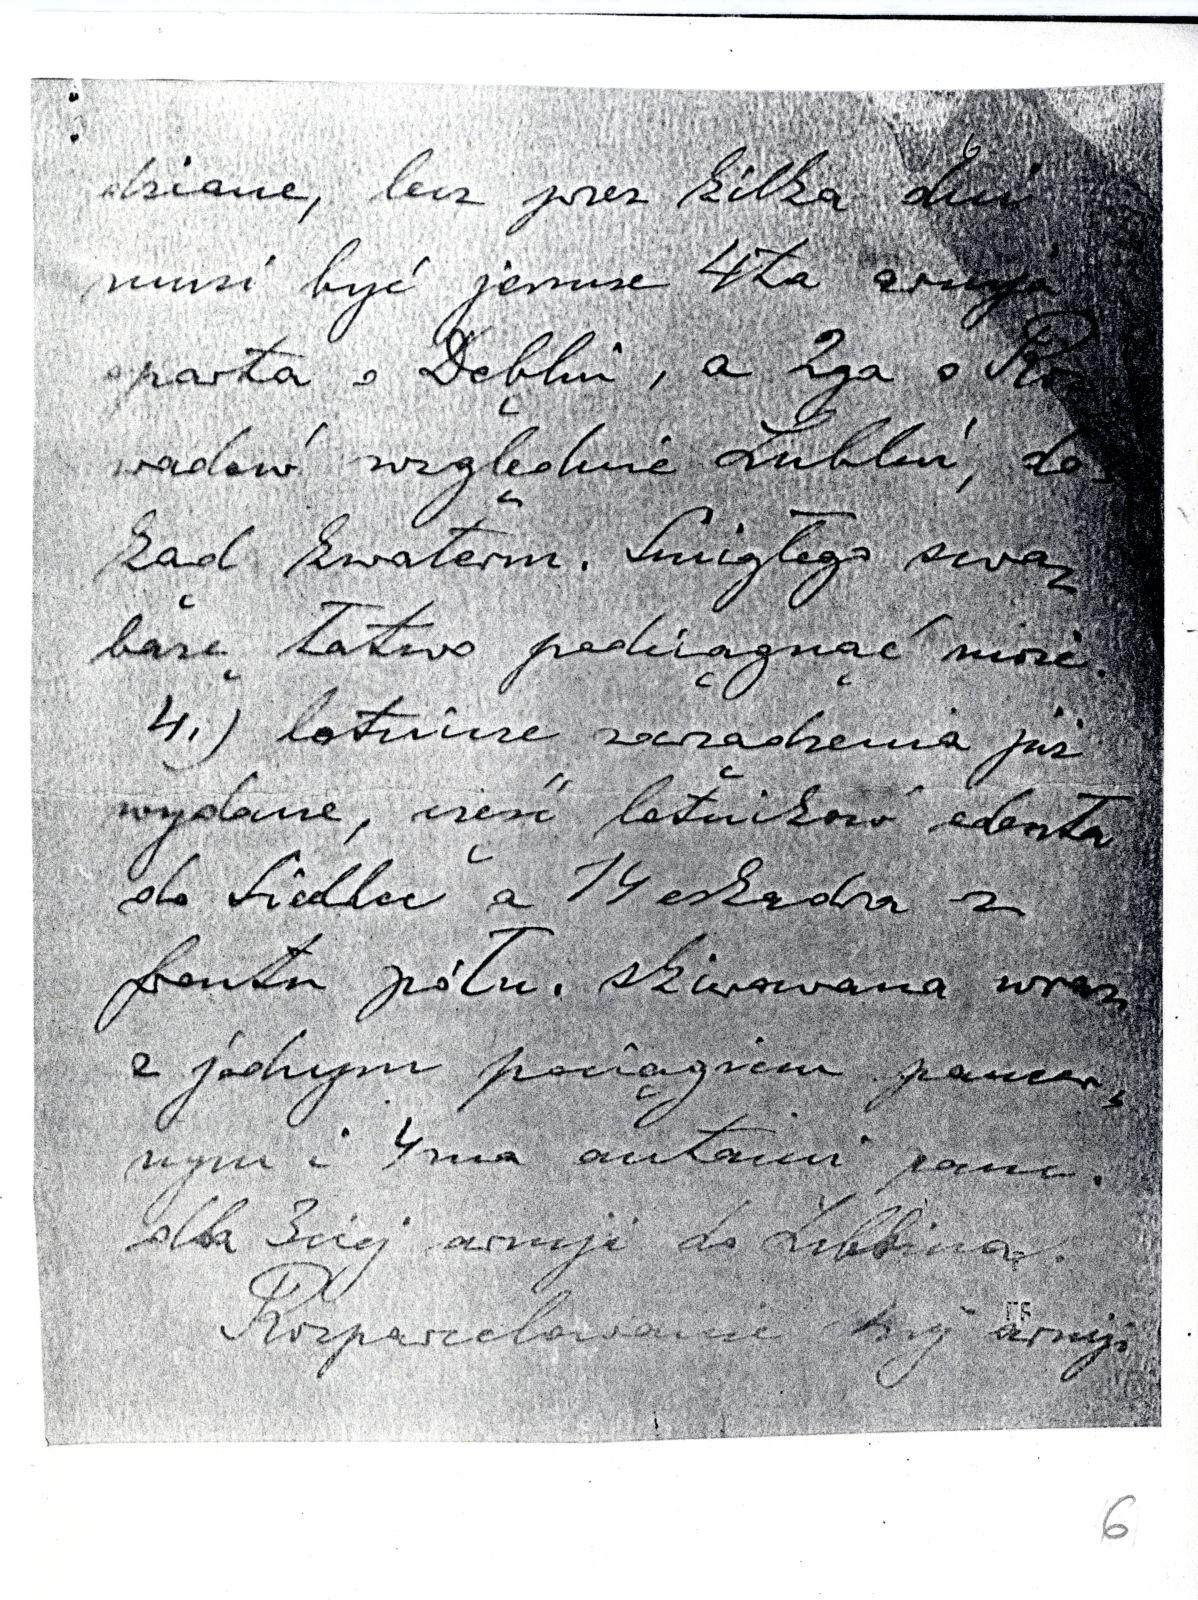 dziane, lecz przez kilka dni
musi być jeszcze 4ta armja
oparta o Dęblin, a 2ga o Roz
wadów względnie Lublin, do-
kąd kwaterm. Śmigłego swą
bazę łatwo podciągnąć może.
4.) lotnicze zarządzenia już
wydane, część lotników odeszła
do Siedlec a 14 eskadra z
frontu półn. skierowana wraz
z jednym pociągiem pancer-
nym i 4ma autami panc.
dla 3ciej armji do Lublina.
Rozparcelowanie armji
6